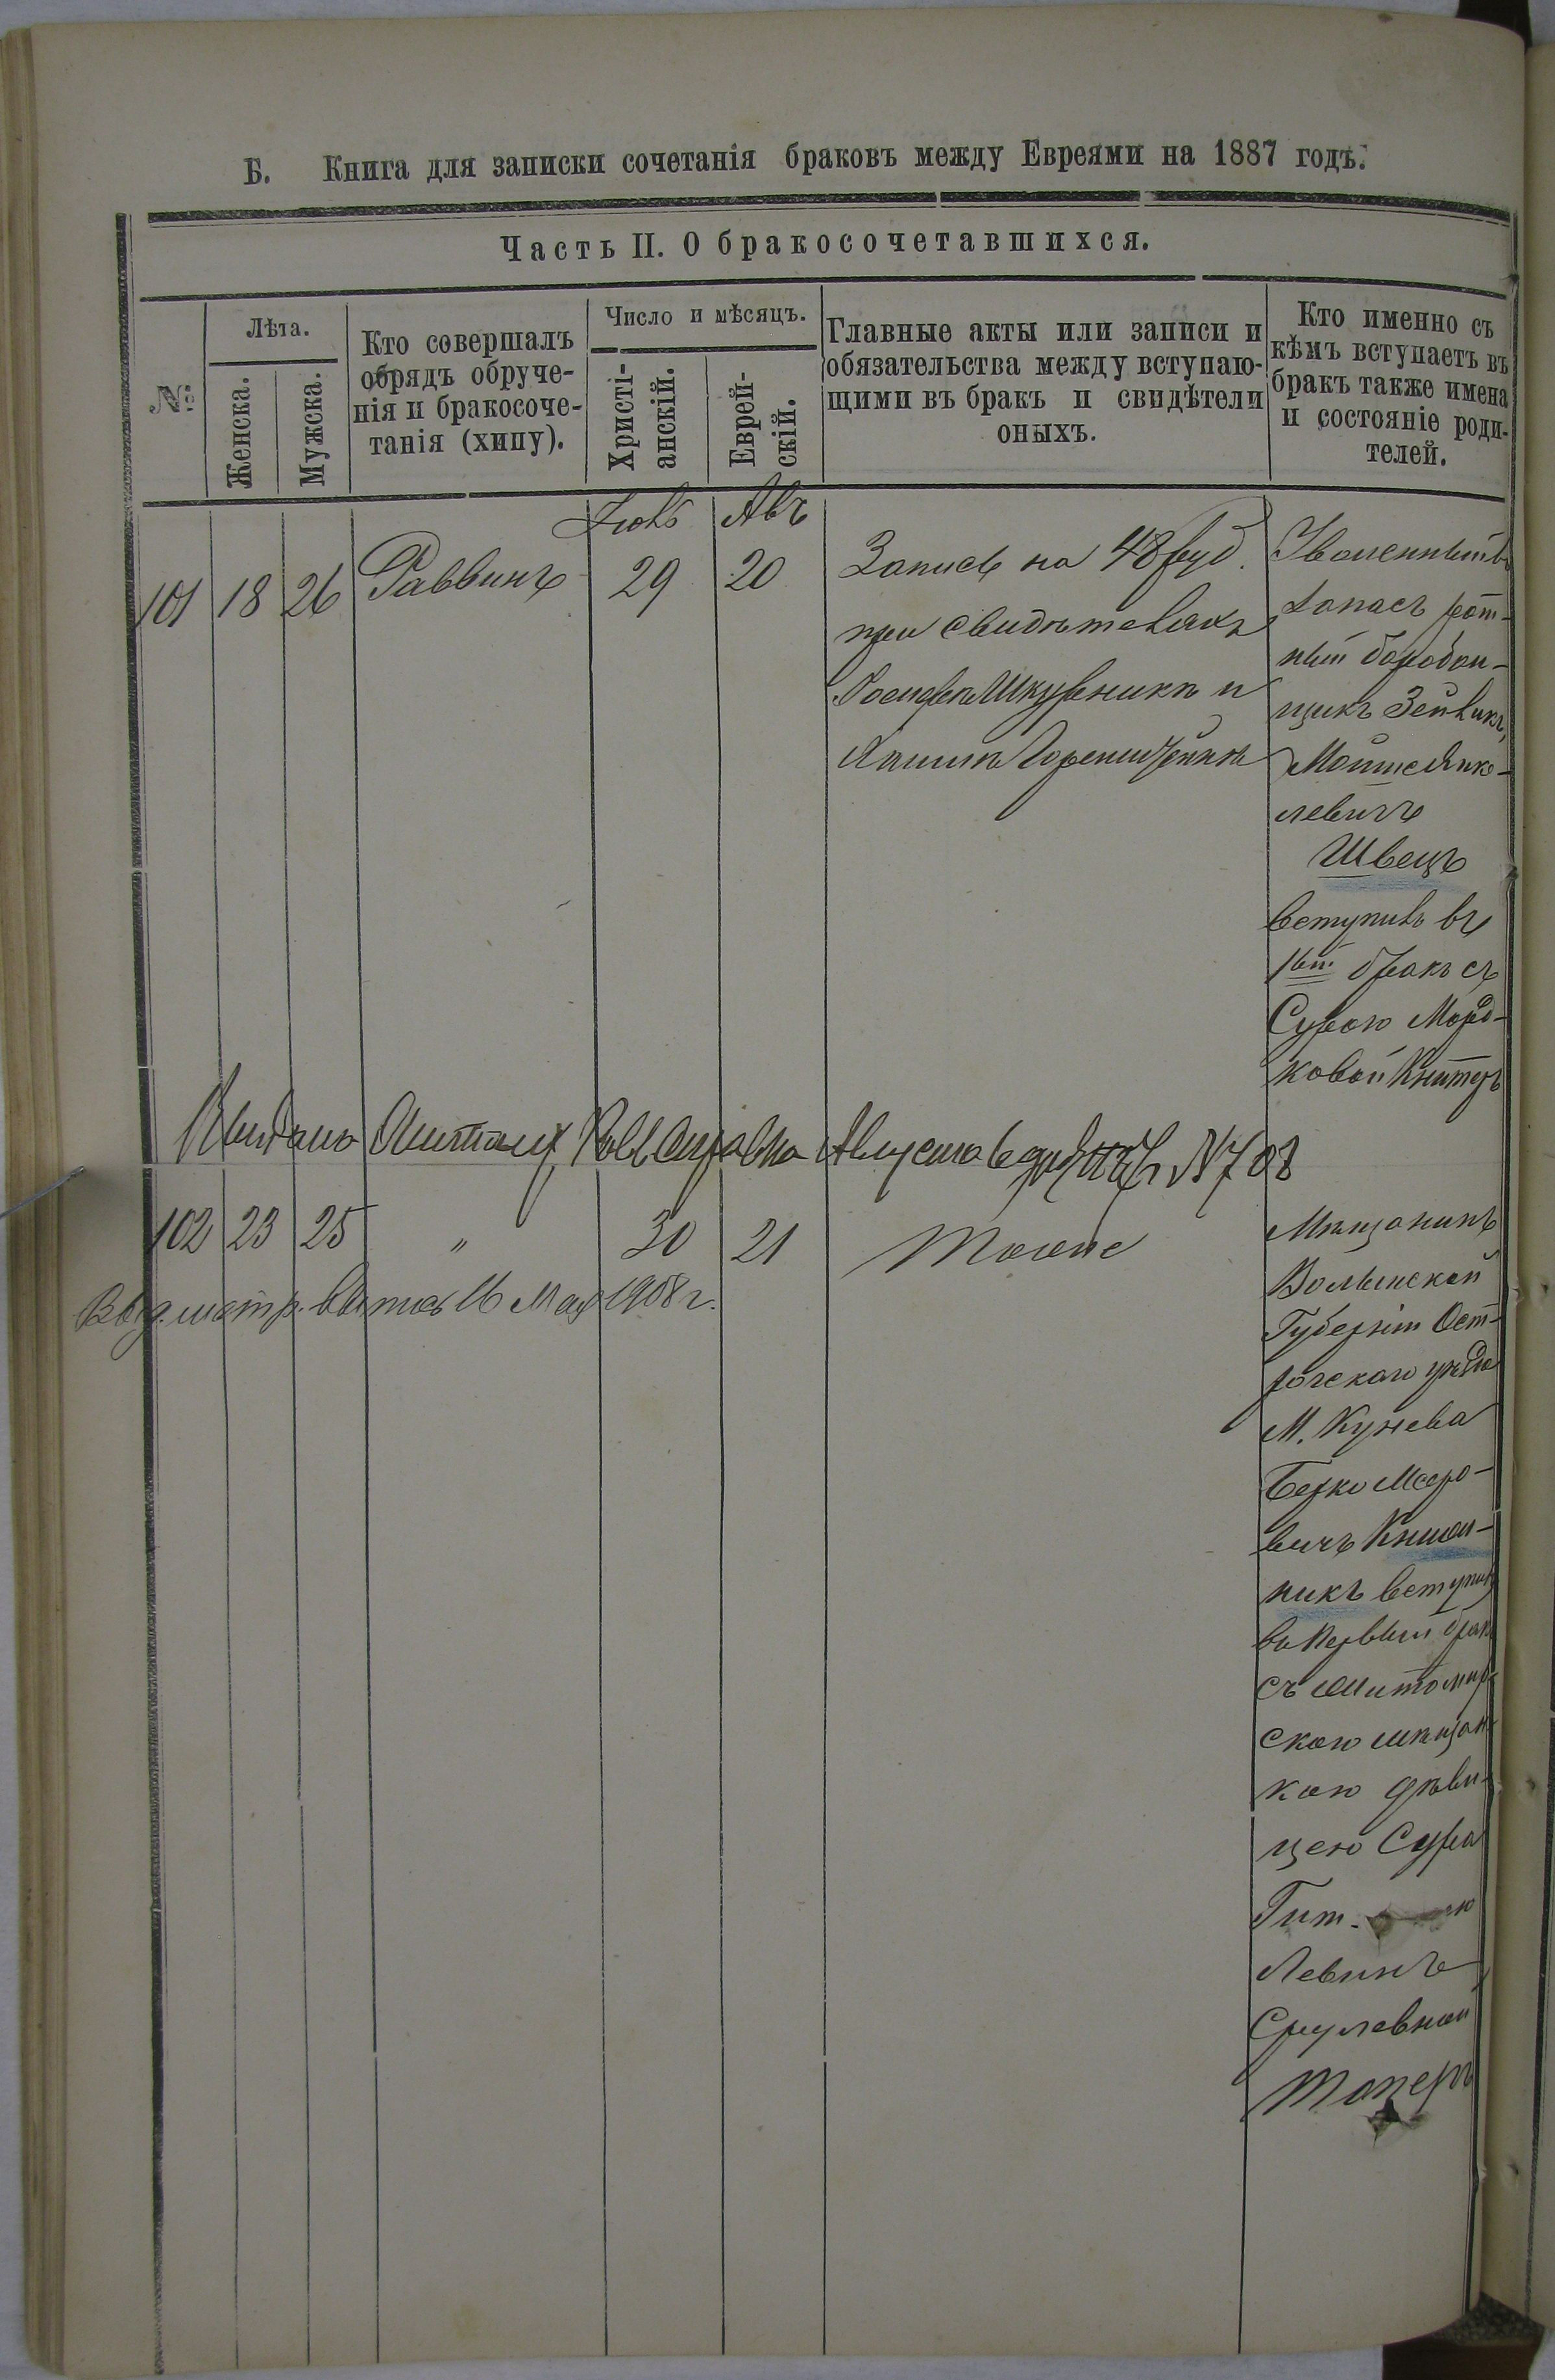 Б. Книга для записки сочетанія браковъ между Евреями на 1887 годъ.
Часть II. О бракосочетавшихся.
№
Лѣта.
Женска.
Мужска.
Кто совершалъ
обрядъ обруче-
нія и бракосоче-
танія (хипу).
Число и мѣсяцъ.
Христі-
анскій.
Еврей-
скій.
Главные акты или записи и
обязательства между вступаю-
щими въ бракъ и свидѣтели
оныхъ.
Кто именно съ
кѣмъ вступаетъ въ
бракъ также имена
и состояніе роди-
телей.
Іюль Авъ
101 18 26 Раввинъ 29 20
Запись на 48 руб.
при свидѣтеляхъ
и
запасъ рот-
ный барабан-
щикъ Зейликъ,
Мошке Янке-
левичъ
Швецъ
вступилъ въ
1ый бракъ съ
Сурою Морд-
ковой
Августа № 708
102 23 25 " 30 21 Тоже
Выд. метр. выпись 16 Мая 1908 г.
Мѣщанинъ
Волынской
Губерніи Ост-
рогскаго уѣзда
М. Кунева
Берко Мееро-
вичъ Книж-
никъ вступилъ
въ первый бракъ
съ Житомир-
скою мѣщан-
кою дѣви-
цею Сура
Гит.
Левинъ
Срулевной
Таперъ